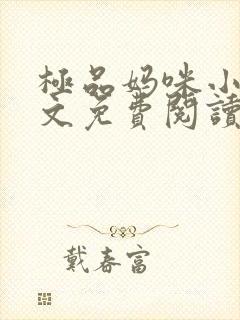 極品妈咪小
文免費閱讀
戴春富